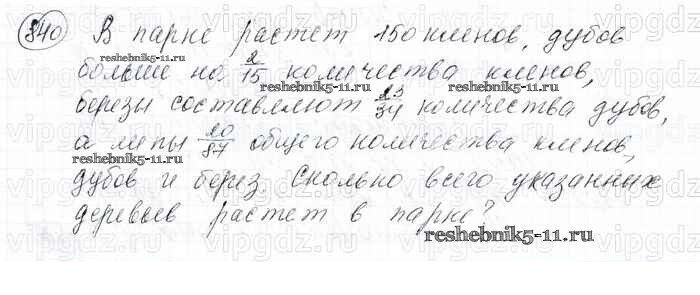 840 В парке растет 150 кленов, дубов
reshebnik5-11.ru
больше на 2/15 количества кленов,
reshebnik5-11.ru
березы составляют 23/34 количества дубов,
а липы 20/87 общего количества кленов,
reshebnik5-11.ru
дубов и берез. Сколько всего указанных
reshebnik5-11.ru
деревьев растет в парке?
reshebnik5-11.ru
vipgdz.ru vipgdz.ru vipgdz.ru vipgdz.ru